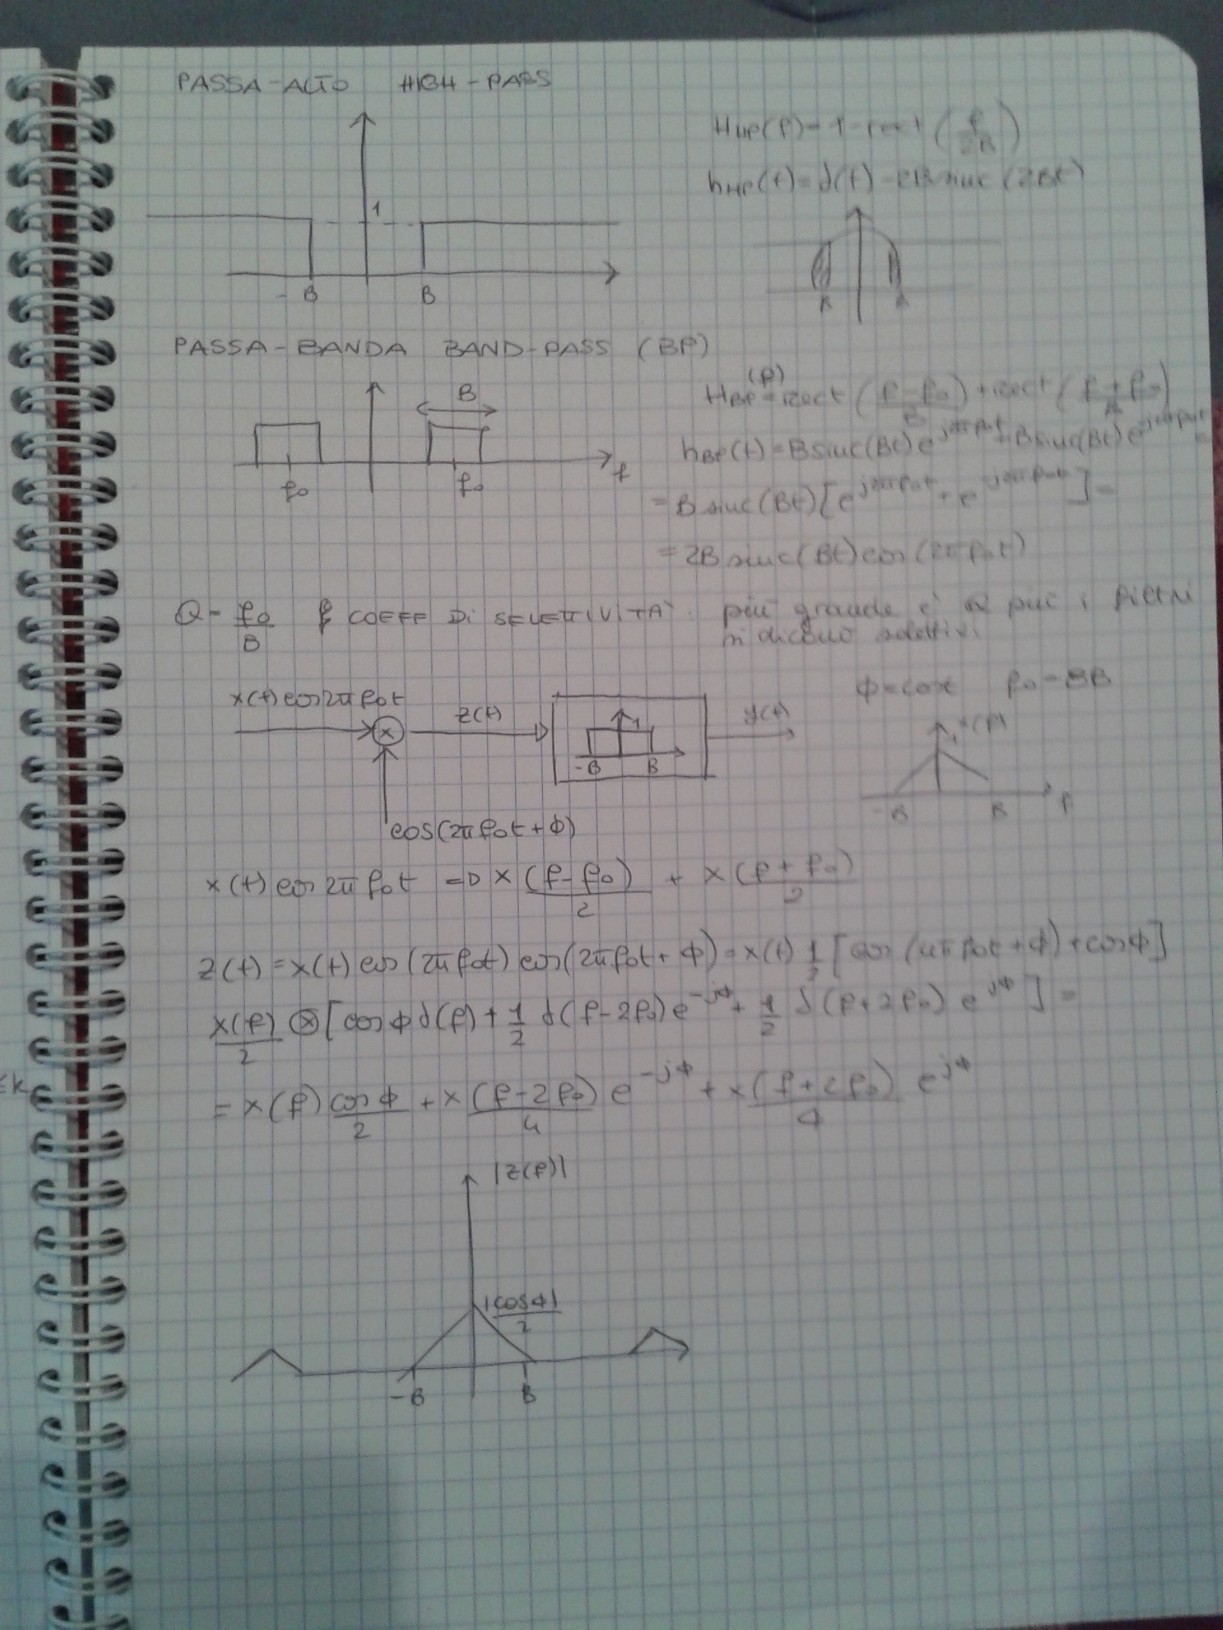 PASSA-ALTO HIGH-PASS
H_HP(f) = 1 - rect (f/2B)
h_HP(t) = δ(t) - 2B sinc (2Bt)
1
-B B
PASSA-BANDA BAND-PASS (BP)
B
f0 f0 f
H_BP(f) = rect ((f-f0)/B) + rect ((f+f0)/B)
h_BP(t) = B sinc(Bt) e^{j2πf0t} + B sinc(Bt) e^{-j2πf0t} =
= B sinc(Bt) [e^{j2πf0t} + e^{-j2πf0t}] =
= 2B sinc(Bt) cos(2πf0t)
Q = f0/B COEFF Di SELETTIVITA' più grande è Q più i filtri
si dicono selettivi
x(t) cos2πf0t z(t) y(t)
x
1
-B B
cos(2πf0t + ϕ)
ϕ = cost
x(f)
1
-B B f
x(t) cos 2πf0t => x(f-f0)/2 + x(f+f0)/2
z(t) = x(t) cos(2πf0t) cos(2πf0t + ϕ) = x(t) 1/2 [cos(4πf0t + ϕ) + cosϕ]
x(f)/2 ⊗ [cosϕ δ(f) + 1/2 δ(f-2f0) e^{-jϕ} + 1/2 δ(f+2f0) e^{jϕ}] =
= x(f) cosϕ/2 + x(f-2f0)/4 e^{-jϕ} + x(f+2f0)/4 e^{jϕ}
|z(f)|
|cosϕ|/2
-B B